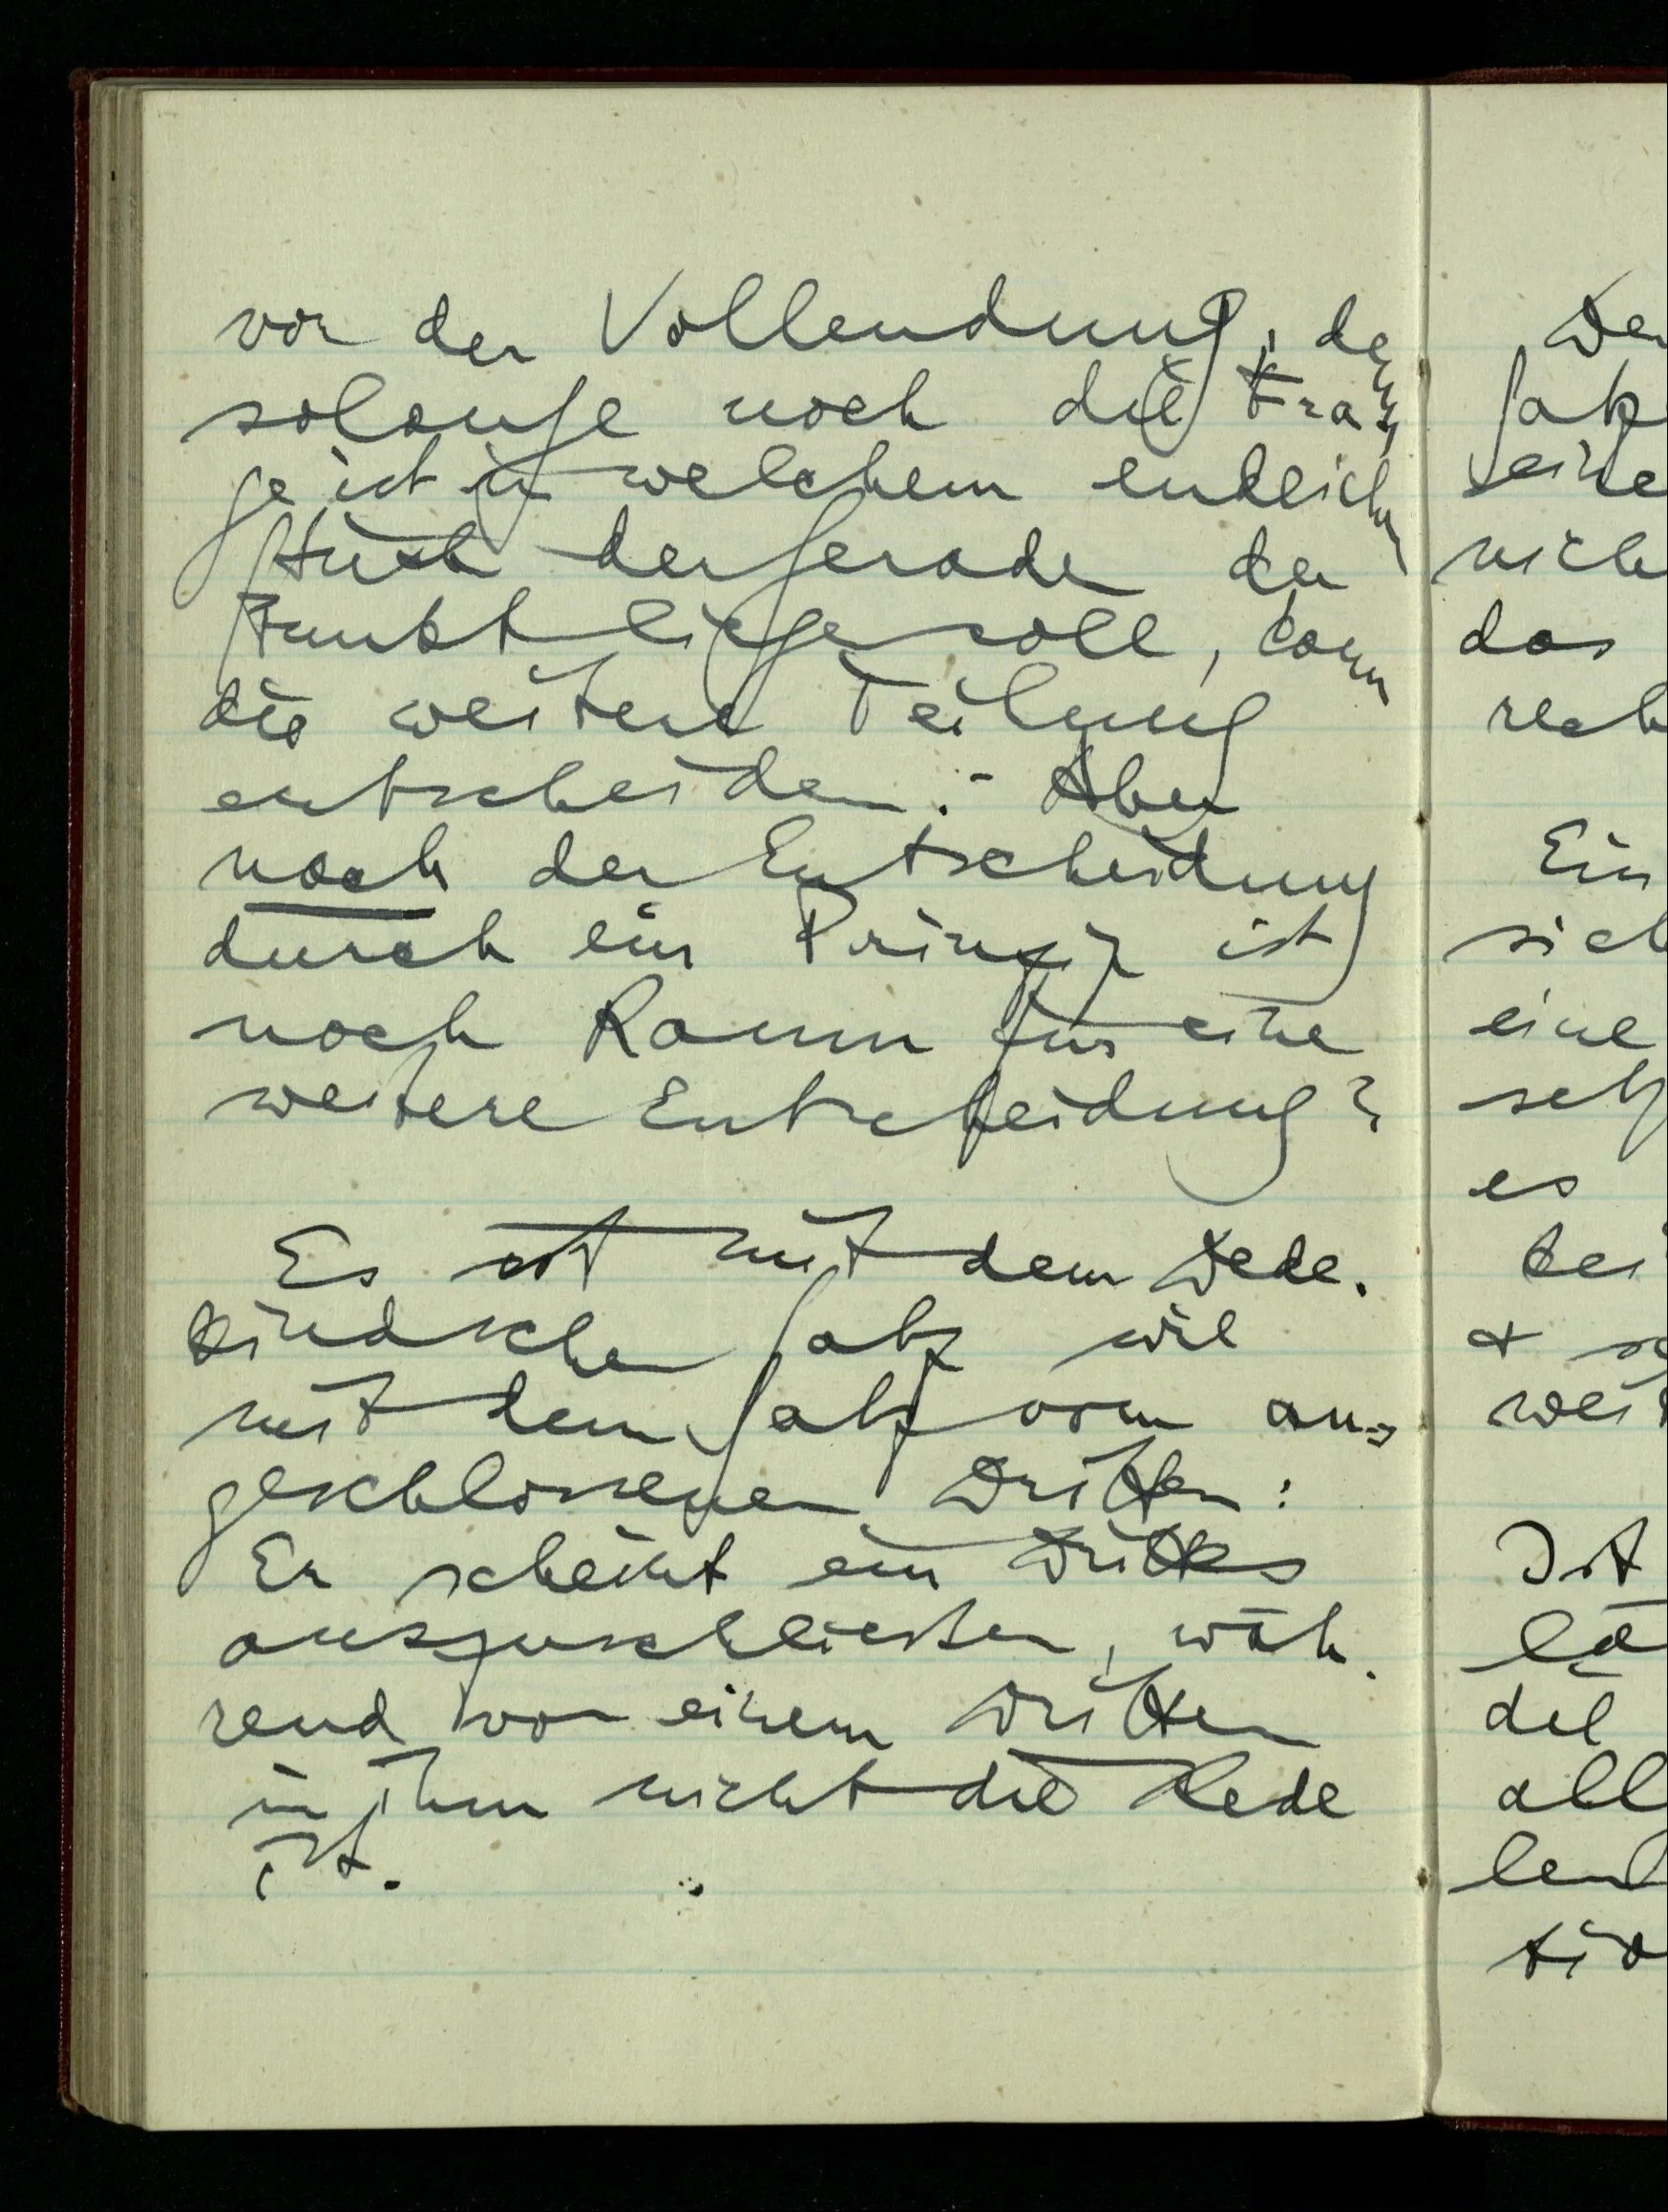 vor der Vollendung, denn
solange noch die Fra=
ge ist in welchem endlichen
Stück der Gerade der
Punkt liegen soll, kann
die weitere Teilung
entscheiden. – Aber
nach der Entscheidung
durch ein Prinzip ist
noch Raum für eine
weitere Entscheidung?
Es ist mit dem Dede-
kindschen Satz wie
mit dem Satz vom aus=
geschlossenen Dritten:
Er scheint ein Drittes
auszuschliessen, wäh-
rend von einem Dritten
in ihm nicht die Rede
ist.
eine
nich
das
rech
Ein
sich
eine
es
Ist
die
all